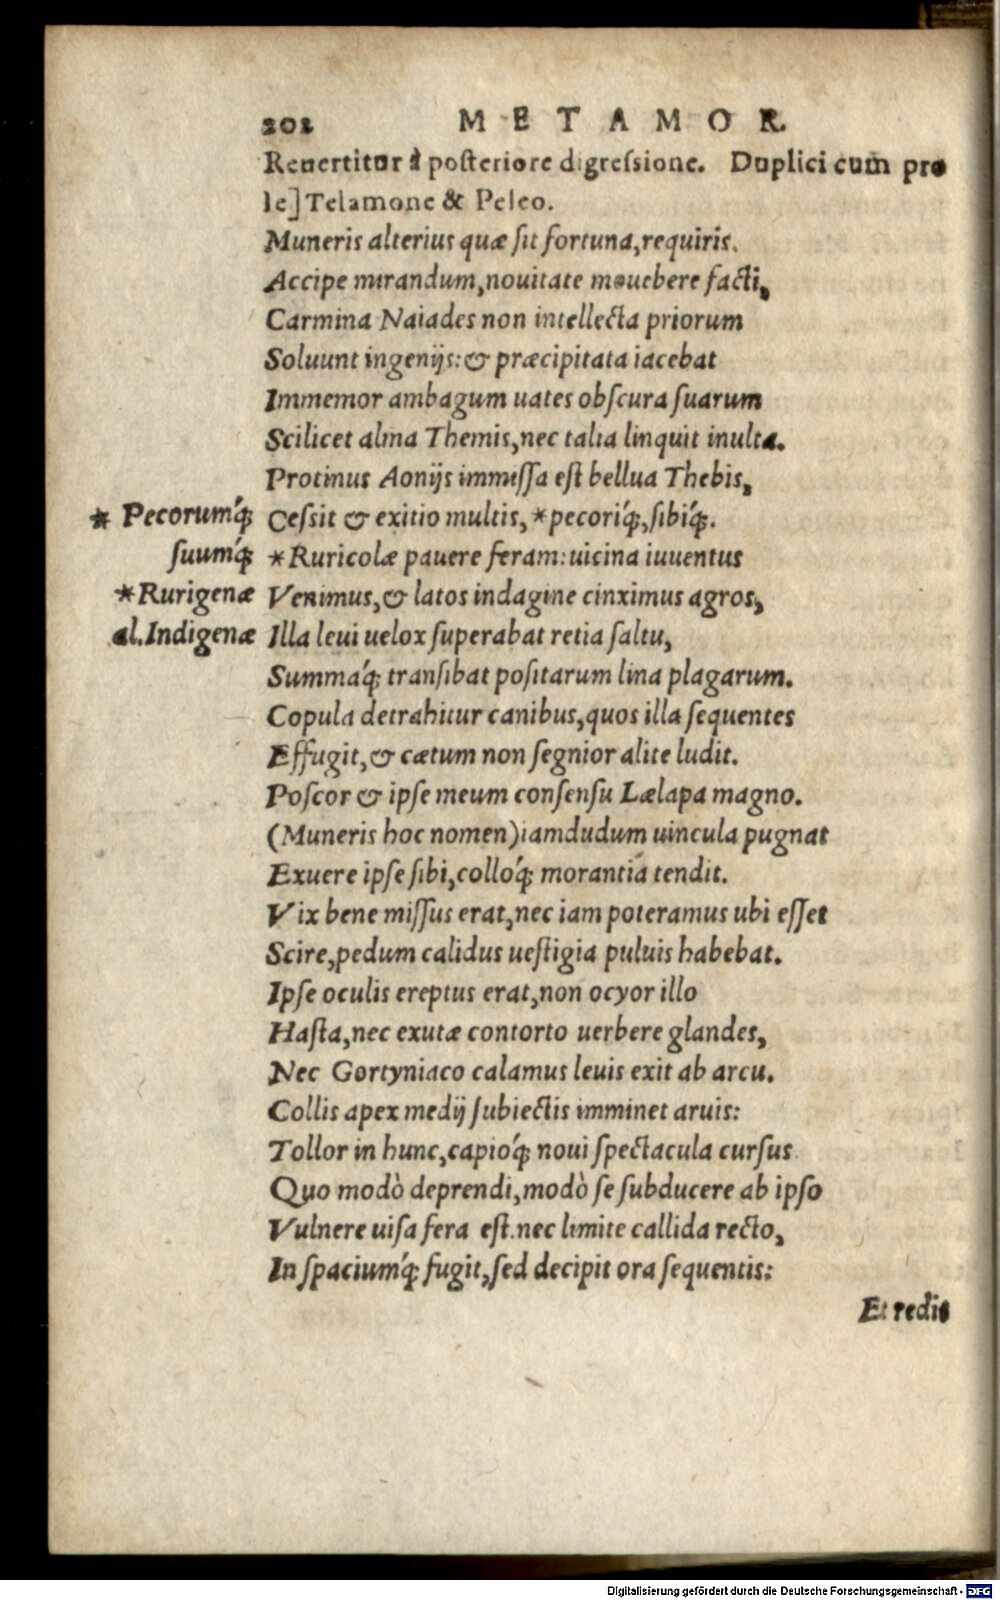 202 METAMOR.
Reuertitur à posteriore digressione. Duplici cum pro
le] Telamone & Peleo.
Muneris alterius quæ sit fortuna, requiris.
Accipe mirandum, nouitate mouebere facti,
Carmina Naiades non intellecta priorum
Soluunt ingenijs: & præcipitata iacebat
Immemor ambagum uates obscura suarum
Scilicet alma Themis, nec talia linquit inulta.
Protinus Aonijs immissa est bellua Thebis,
* Pecorumq́; Cessit & exitio multis, *pecoriq́;, sibiq́;.
suumq́; *Ruricolæ pauere feram: uicina iuuentus
*Rurigenæ Venimus, & latos indagine cinximus agros,
al. Indigenæ Illa leui uelox superabat retia saltu,
Summaq́; transibat positarum lina plagarum.
Copula detrahitur canibus, quos illa sequentes
Effugit, & cætum non segnior alite ludit.
Poscor & ipse meum consensu Lælapa magno.
(Muneris hoc nomen) iamdudum uincula pugnat
Exuere ipse sibi, colloq́; morantia tendit.
Vix bene missus erat, nec iam poteramus ubi esset
Scire, pedum calidus uestigia puluis habebat.
Ipse oculis ereptus erat, non ocyor illo
Hasta, nec exutæ contorto uerbere glandes,
Nec Gortyniaco calamus leuis exit ab arcu.
Collis apex medij subiectis imminet aruis:
Tollor in hunc, capioq́; noui spectacula cursus
Quo modò deprendi, modò se subducere ab ipso
Vulnere uisa fera est. nec limite callida recto,
In spaciumq́; fugit, sed decipit ora sequentis:
Et redit
Digitalisierung gefördert durch die Deutsche Forschungsgemeinschaft - DFG